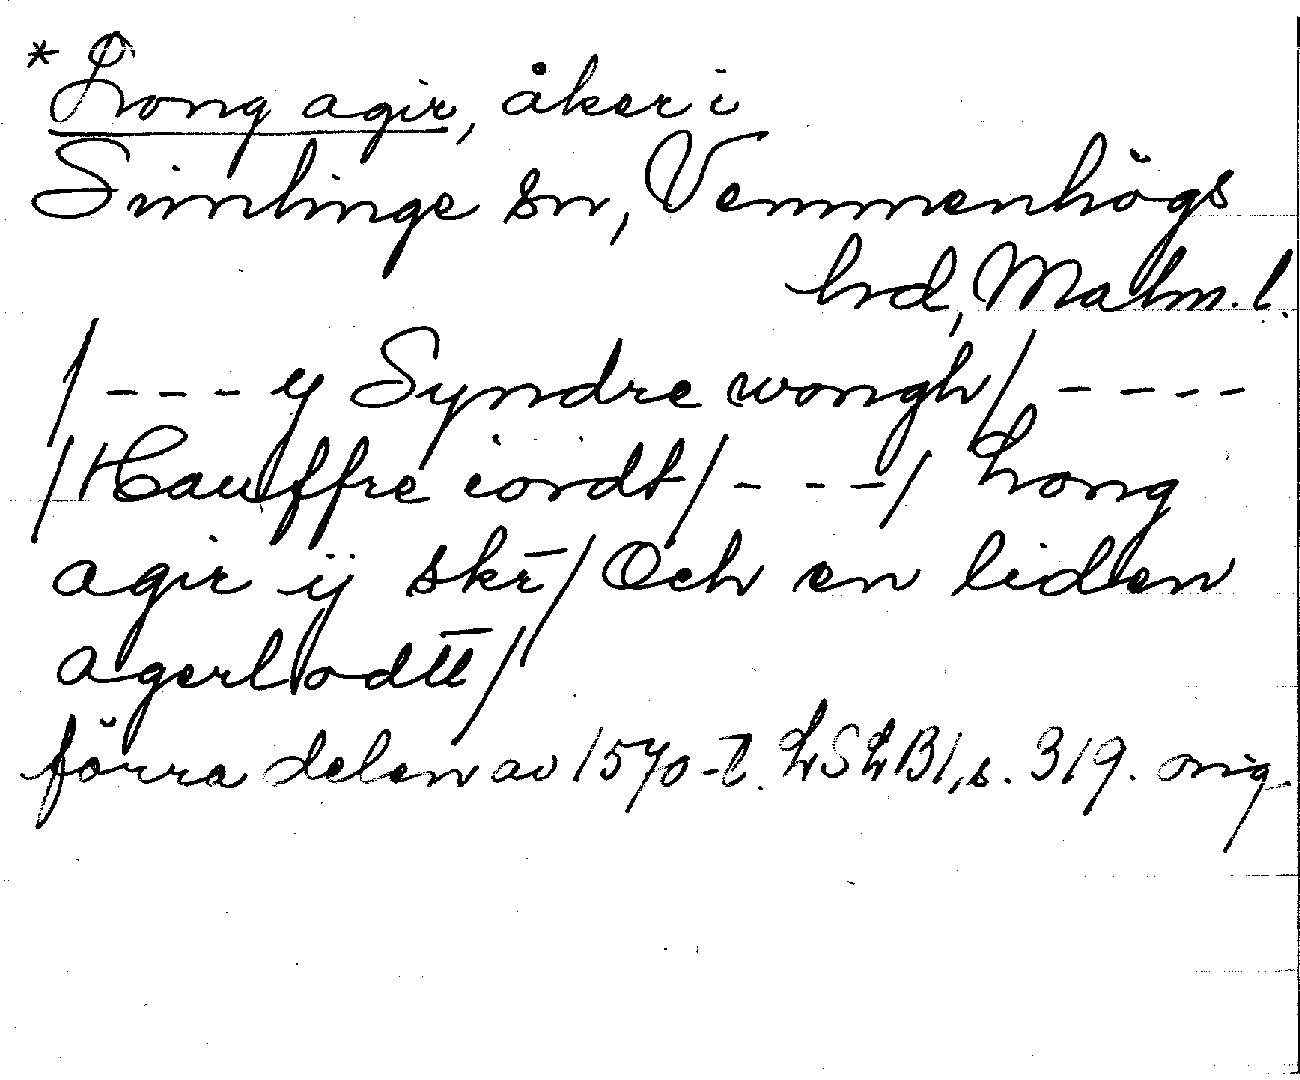 * Long agir, åker i
Simlinge sn, Vemmenhögs
hd, Malm. l.
/ - - - y Syndre wongh/ - - - -
/ Hauffre iordt / - - - / Long
agir ÿ skr̄ / Och en liden
agerlodtt̄ /
förra delen av 1570-t. LSLB1, s. 319. orig.